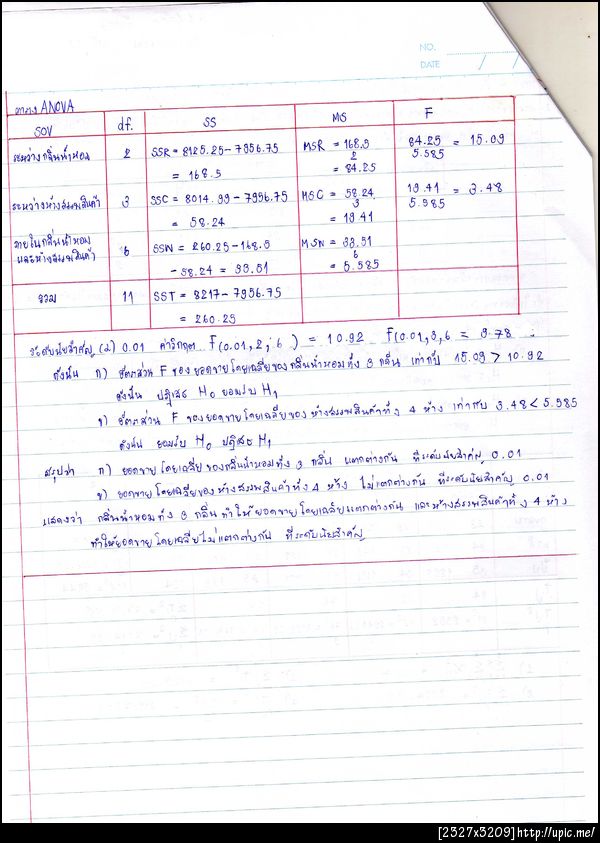 NO.
DATE / /
ตาราง ANOVA
SOV df. SS MS F
ระหว่างกลิ่นน้ำหอม 2 SSR = 8125.25-7956.75 MSR = 168.5 84.25 = 15.09
2 5.585
= 168.5 = 84.25
ระหว่างห้างสรรพสินค้า 3 SSC = 8014.99-7956.75 MSC = 58.24 19.41 = 3.48
3 5.585
= 58.24 = 19.41
ภายในกลิ่นน้ำหอม 6 SSW = 260.25-168.5 MSW = 33.51
และห้างสรรพสินค้า 6
-58.24 = 33.51 = 5.585
รวม 11 SST = 8217-7956.75
= 260.25
ระดับนัยสำคัญ (α) 0.01 ค่าวิกฤต F(0.01,2,6) = 10.92 F(0.01,3,6 = 9.78
ดังนั้น ก) อัตราส่วน F ของยอดขายโดยเฉลี่ยของกลิ่นน้ำหอมทั้ง 3 กลิ่น เท่ากับ 15.09 > 10.92
ดังนั้น ปฏิเสธ H0 ยอมรับ H1
ข) อัตราส่วน F ของยอดขายโดยเฉลี่ยของห้างสรรพสินค้าทั้ง 4 ห้าง เท่ากับ 3.48 < 5.585
ดังนั้น ยอมรับ H0 ปฏิเสธ H1
สรุปว่า ก) ยอดขายโดยเฉลี่ยของกลิ่นน้ำหอมทั้ง 3 กลิ่น แตกต่างกัน ที่ระดับนัยสำคัญ 0.01
ข) ยอดขายโดยเฉลี่ยของห้างสรรพสินค้าทั้ง 4 ห้าง ไม่แตกต่างกัน ที่ระดับนัยสำคัญ 0.01
แสดงว่า กลิ่นน้ำหอมทั้ง 3 กลิ่นทำให้ยอดขายโดยเฉลี่ยแตกต่างกัน และห้างสรรพสินค้าทั้ง 4 ห้าง
ทำให้ยอดขายโดยเฉลี่ยไม่แตกต่างกัน ที่ระดับนัยสำคัญ
[2327x3209] http://upic.me/